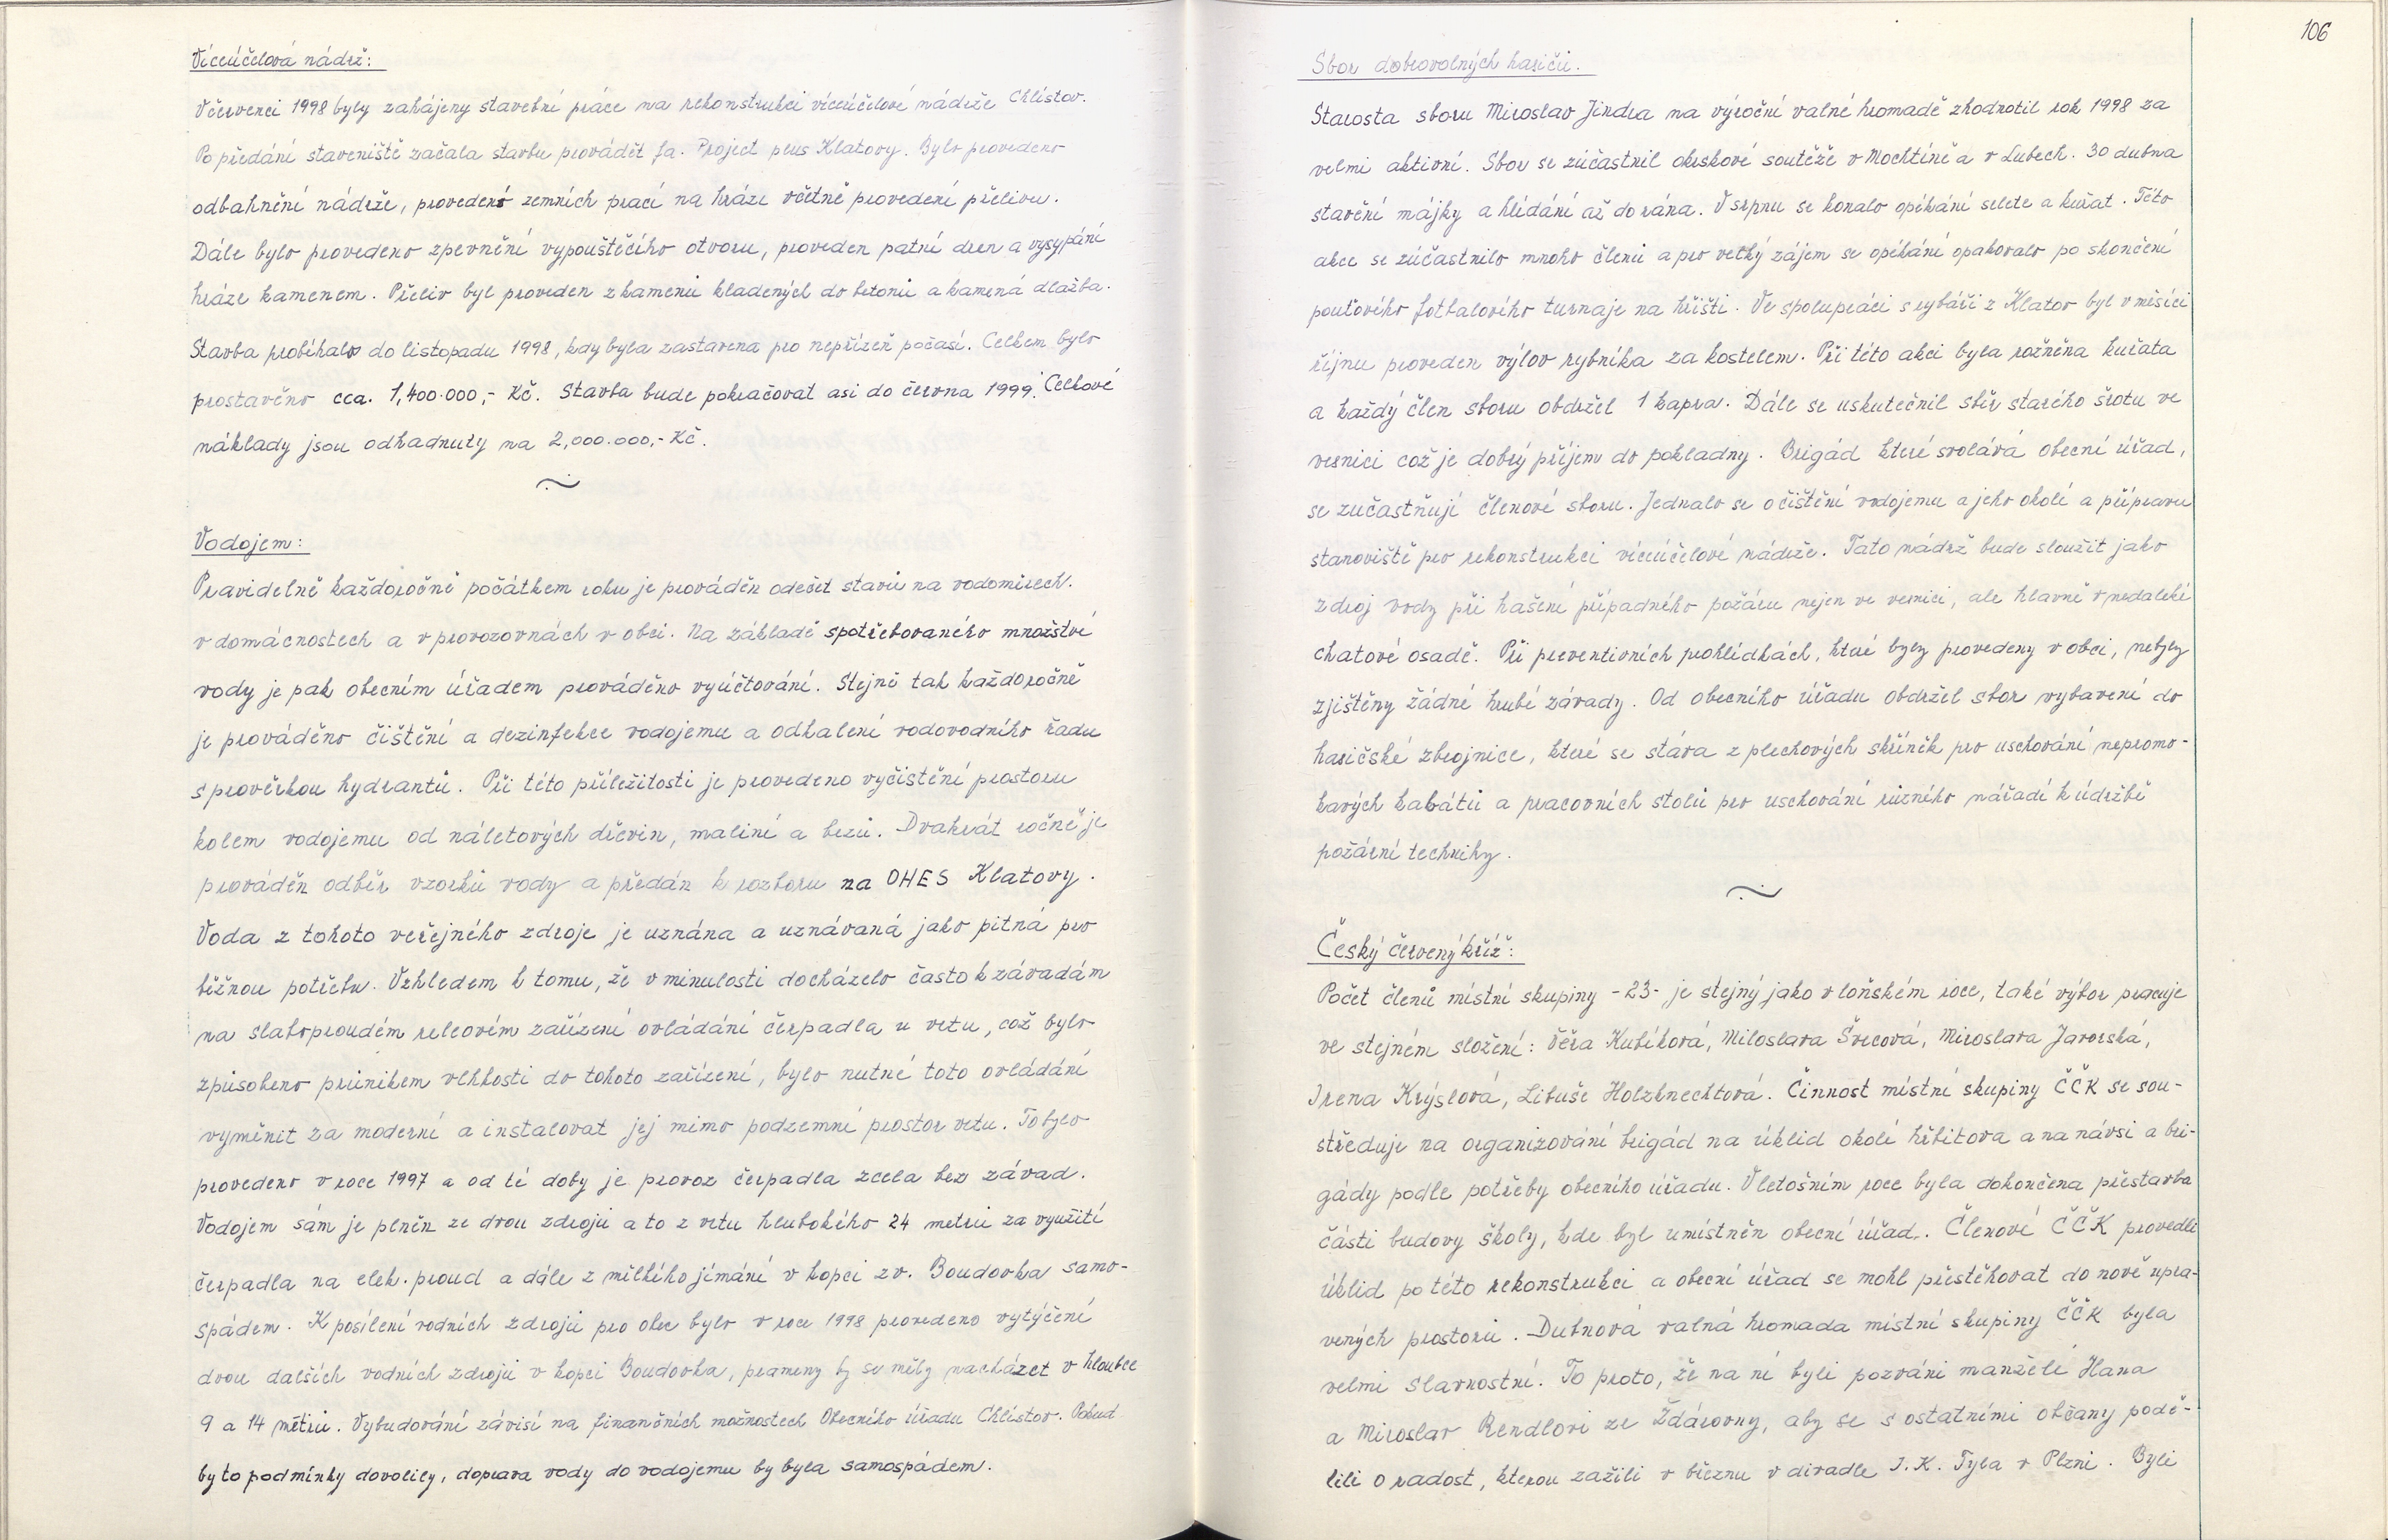 Víceúčelová nádrž:
V červenci 1998 byly zahájeny stavební práce na rekonstrukci víceúčelové nádrže Chlístov.
Po předání staveniště začala stavbu provádět fa. Project plus Klatovy. Bylo provedeno
odbahnění nádrže, provedení zemních prací na hrázi včetně provedení přelivu.
Dále bylo provedeno zpevnění vypouštěcího otvoru, proveden patní dren a vysypání
hráze kamenem. Přeliv byl proveden z kamenů kladených do betonů a kamená dlažba.
Stavba probíhala do listopadu 1998, kdy byla zastavena pro nepřízeň počasí. Celkem bylo
prostavěno cca. 1,400.000,- Kč. Stavba bude pokračovat asi do června 1999. Celkové
náklady jsou odhadnuty na 2,000.000,- Kč.
Vodojem:
Pravidelně každoročně počátkem roku je prováděn odečet stavů na vodoměrech.
v domácnostech a v provozovnách v obci. Na základě spotřebovaného množství
vody je pak obecním úřadem prováděno vyúčtování. Stejně tak každoročně
je prováděno čištění a dezinfekce vodojemu a odkalení vodovodního řadu
s prověrkou hydrantů. Při této příležitosti je provedeno vyčistění prostoru
kolem vodojemu od náletových dřevin, maliní a bezů. Dvakrát ročně je
prováděn odběr vzorků vody a předán k rozboru na OHES Klatovy.
Voda z tohoto veřejného zdroje je uznána a uznávaná jako pitná pro
běžnou potřebu. Vzhledem k tomu, že v minulosti docházelo často k závadám
na slaboproudém releovém zařízení ovládání čerpadla u vrtu, což bylo
způsobeno průnikem vlhkosti do tohoto zařízení, bylo nutné toto ovládání
vyměnit za moderní a instalovat jej mimo podzemní prostor vrtu. To bylo
provedeno v roce 1997 a od té doby je provoz čerpadla zcela bez závad.
Vodojem sám je plněn ze dvou zdrojů a to z vrtu hlubokého 24 metrů za využití
čerpadla na elek. proud a dále z mělkého jímání v kopci zv. Boudovka samo-
spádem. K posílení vodních zdrojů pro obec bylo v roce 1998 provedeno vytýčení
dvou dalších vodních zdrojů v kopci Boudovka, prameny by se měly nacházet v hloubce
9 a 14 metrů. Vybudování závisí na finančních možnostech Obecního úřadu Chlístov. Pokud
by to podmínky dovolily, doprava vody do vodojemu by byla samospádem.
106
Sbor dobrovolných hasičů.
Starosta sboru Miroslav Jindra na výroční valné hromadě zhodnotil rok 1998 za
velmi aktivní. Sbor se zúčastnil okrskové soutěže v Mochtíně a v Lubech. 30 dubna
stavění májky a hlídání až do rána. V srpnu se konalo opékání selete a kuřat. Této
akce se zúčastnilo mnoho členů a pro velký zájem se opékání opakovalo po skončení
pouťového fotbalového turnaje na hřišti. Ve spolupráci s rybáři z Klatov byl v měsíci
říjnu proveden výlov rybníka za kostelem. Při této akci byla rožněna kuřata
a každý člen sboru obdržel 1 kapra. Dále se uskutečnil sběr starého šrotu ve
vesnici což je dobrý příjem do pokladny. Brigád které svolává obecní úřad,
se zučastňují členové sboru. Jednalo se o čištění vodojemu a jeho okolí a přípravu
stanoviště pro rekonstrukci víceúčelové nádrže. Tato nádrž bude sloužit jako
zdroj vody při hašení případného požáru nejen ve vesnici, ale hlavně v nedaleké
chatové osadě. Při preventivních prohlídkách, které byly provedeny v obci, nebyly
zjištěny žádné hrubé závady. Od obecního úřadu obdržel sbor vybavení do
hasičské zbrojnice, které se stáva z plechových skříněk pro uschování nepromo-
kavých kabátů a pracovních stolů pro uschování různého nářadí k údržbě
požární techniky.
Český červený kříž:
Počet členů místní skupiny -23- je stejný jako v loňském roce, také výbor pracuje
ve stejném složení: Věra Kubíková, Miloslava Švecová, Miroslava Javorská,
Irena Krýslová, Libuše Holzknechtová. Činnost místní skupiny ČČK se sou-
středuje na organizování brigád na úklid okolí hřbitova a na návsi a bri-
gády podle potřeby obecního úřadu. V letošním roce byla dokončena přestavba
části budovy školy, kde byl umístněn obecní úřad. Členové ČČK provedli
úklid po této rekonstrukci a obecní úřad se mohl přestěhovat do nově upra-
vených prostorů. Dubnová valná hromada místní skupiny ČČK byla
velmi slavnostní. To proto, že na ní byli pozváni manželé Hana
a Miroslav Rendlovi ze Žďárovny, aby se s ostatními občany podě-
lili o radost, kterou zažili v březnu v divadle J.K. Tyla v Plzni. Byli